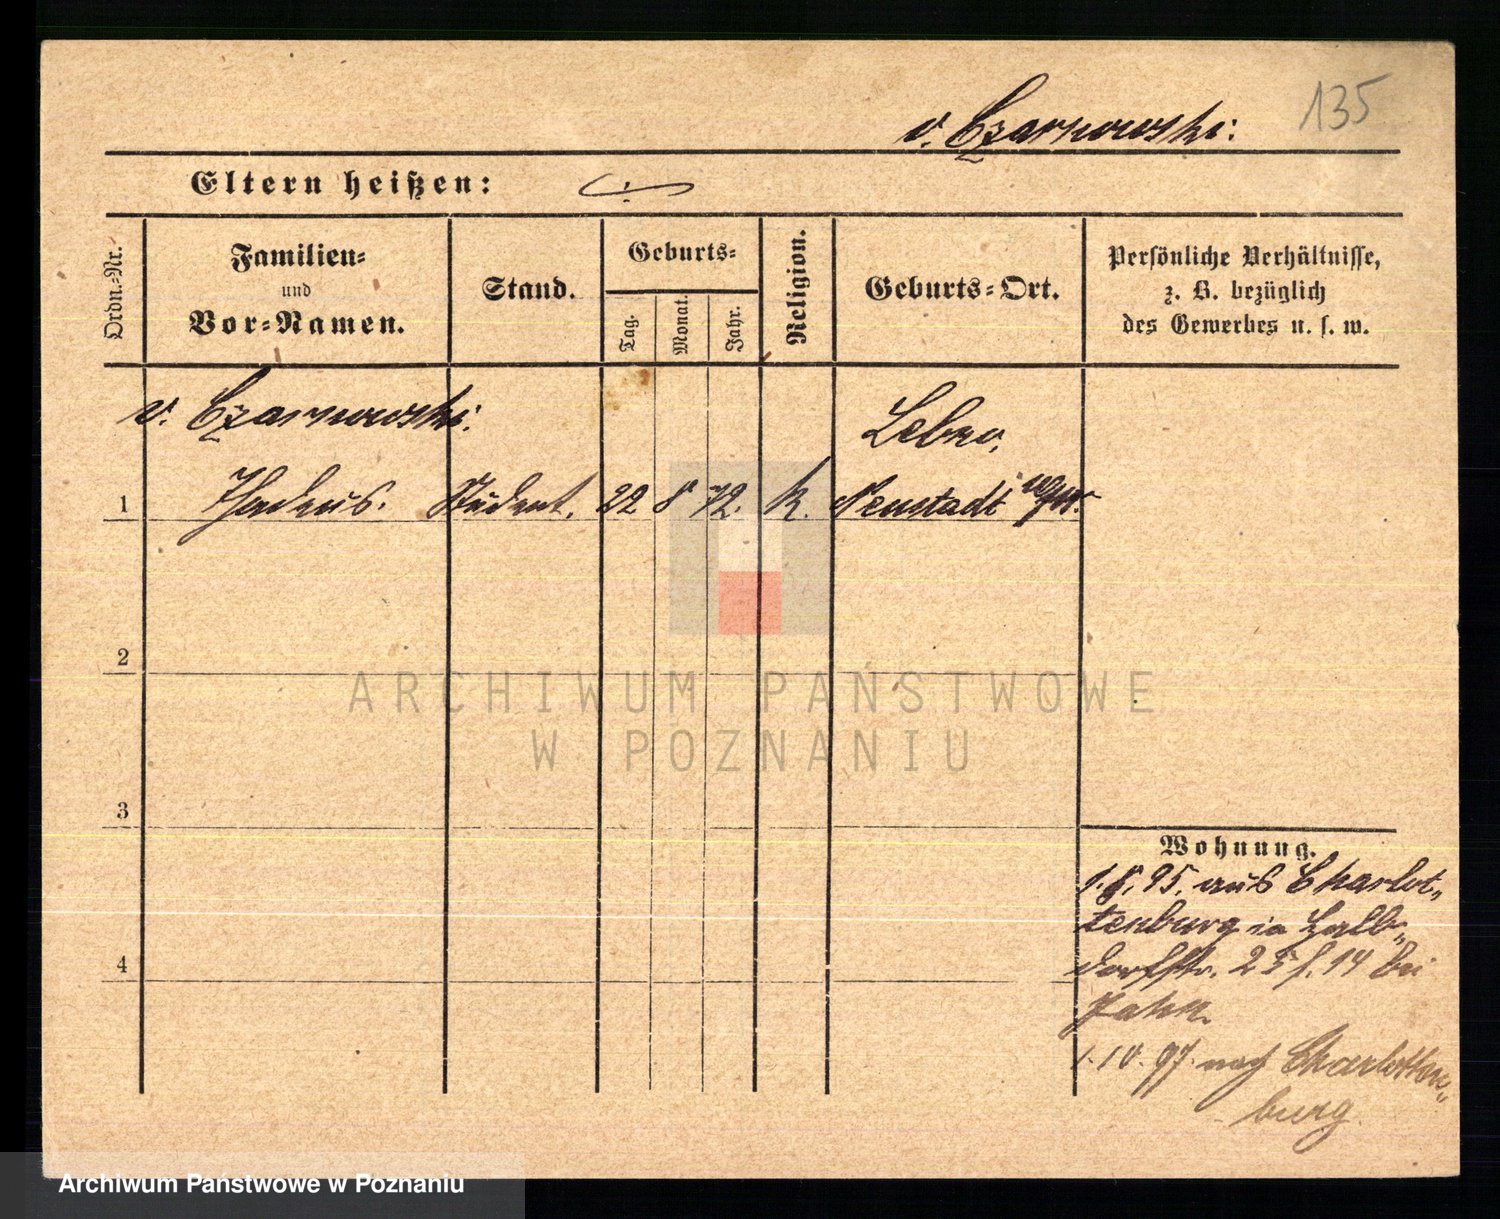 v. Czarnowski:
135
Eltern heißen:
Ordn.-Nr.
Familien-
und
Vor-Namen.
Stand.
Geburts-
Tag.
Monat.
Jahr.
Religion.
Geburts-Ort.
Persönliche Verhältnisse,
z. B. bezüglich
des Gewerbes u. s. w.
v. Czarnowski:
Lebno,
1 Thadeus. Student. 22 8 72. k. Neustadt
2
ARCHIWUM PAŃSTWOWE
W POZNANIU
3
Wohnung.
1.8.95. aus Charlot-
tenburg in Halb-
dorfstr. 25 14 bei
4
1.10.97. nach Charlotten-
burg
Archiwum Państwowe w Poznaniu